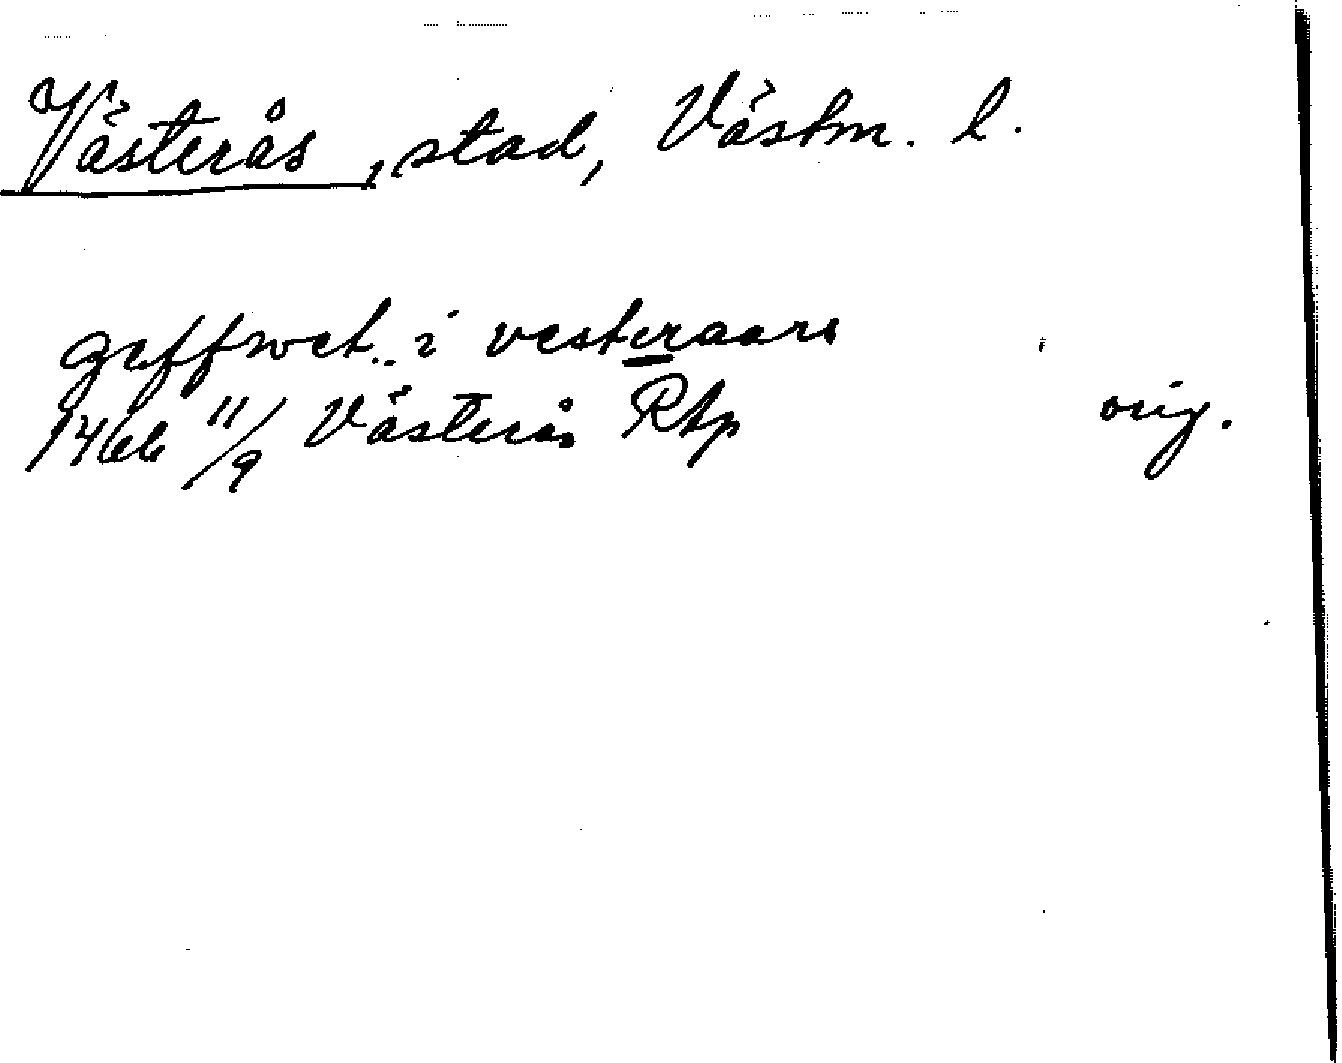 Västerås, stad, Västm. l.
geffwet.. i vesteraars
1466 11/9 Västerås Rtp orig.